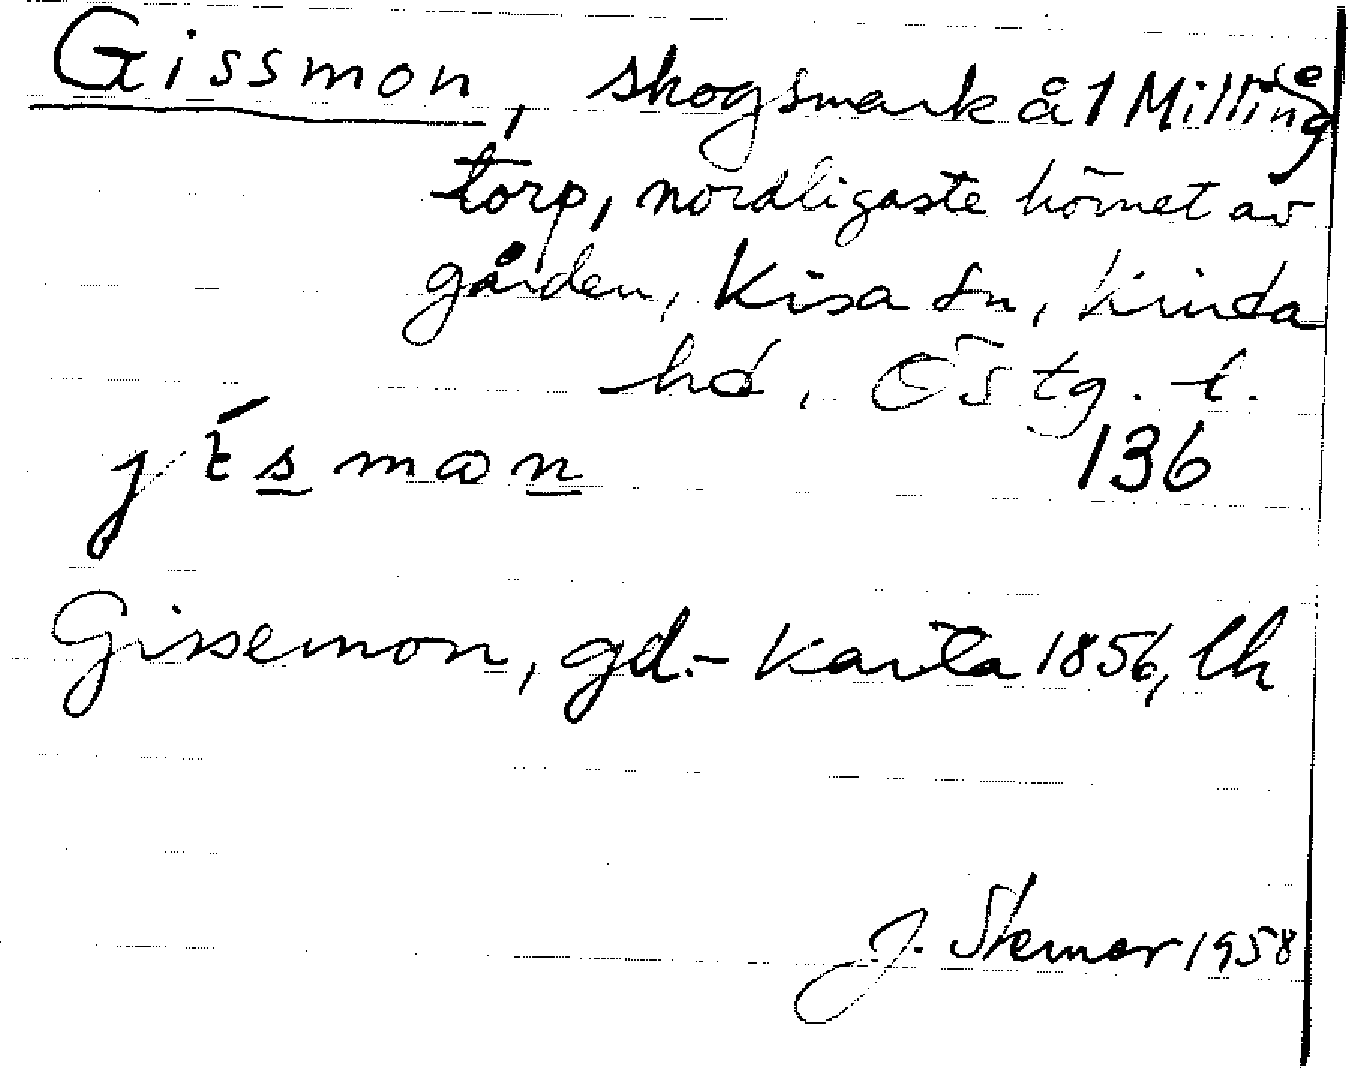 Gissmon, skogsmark å 1 Millinge
torp, nordligaste hörnet av
gården, Kisa sn, Kinda
hd, Östg. l.
136
Gissemon, gd.- karta 1856, lh
J. Stemar 1958